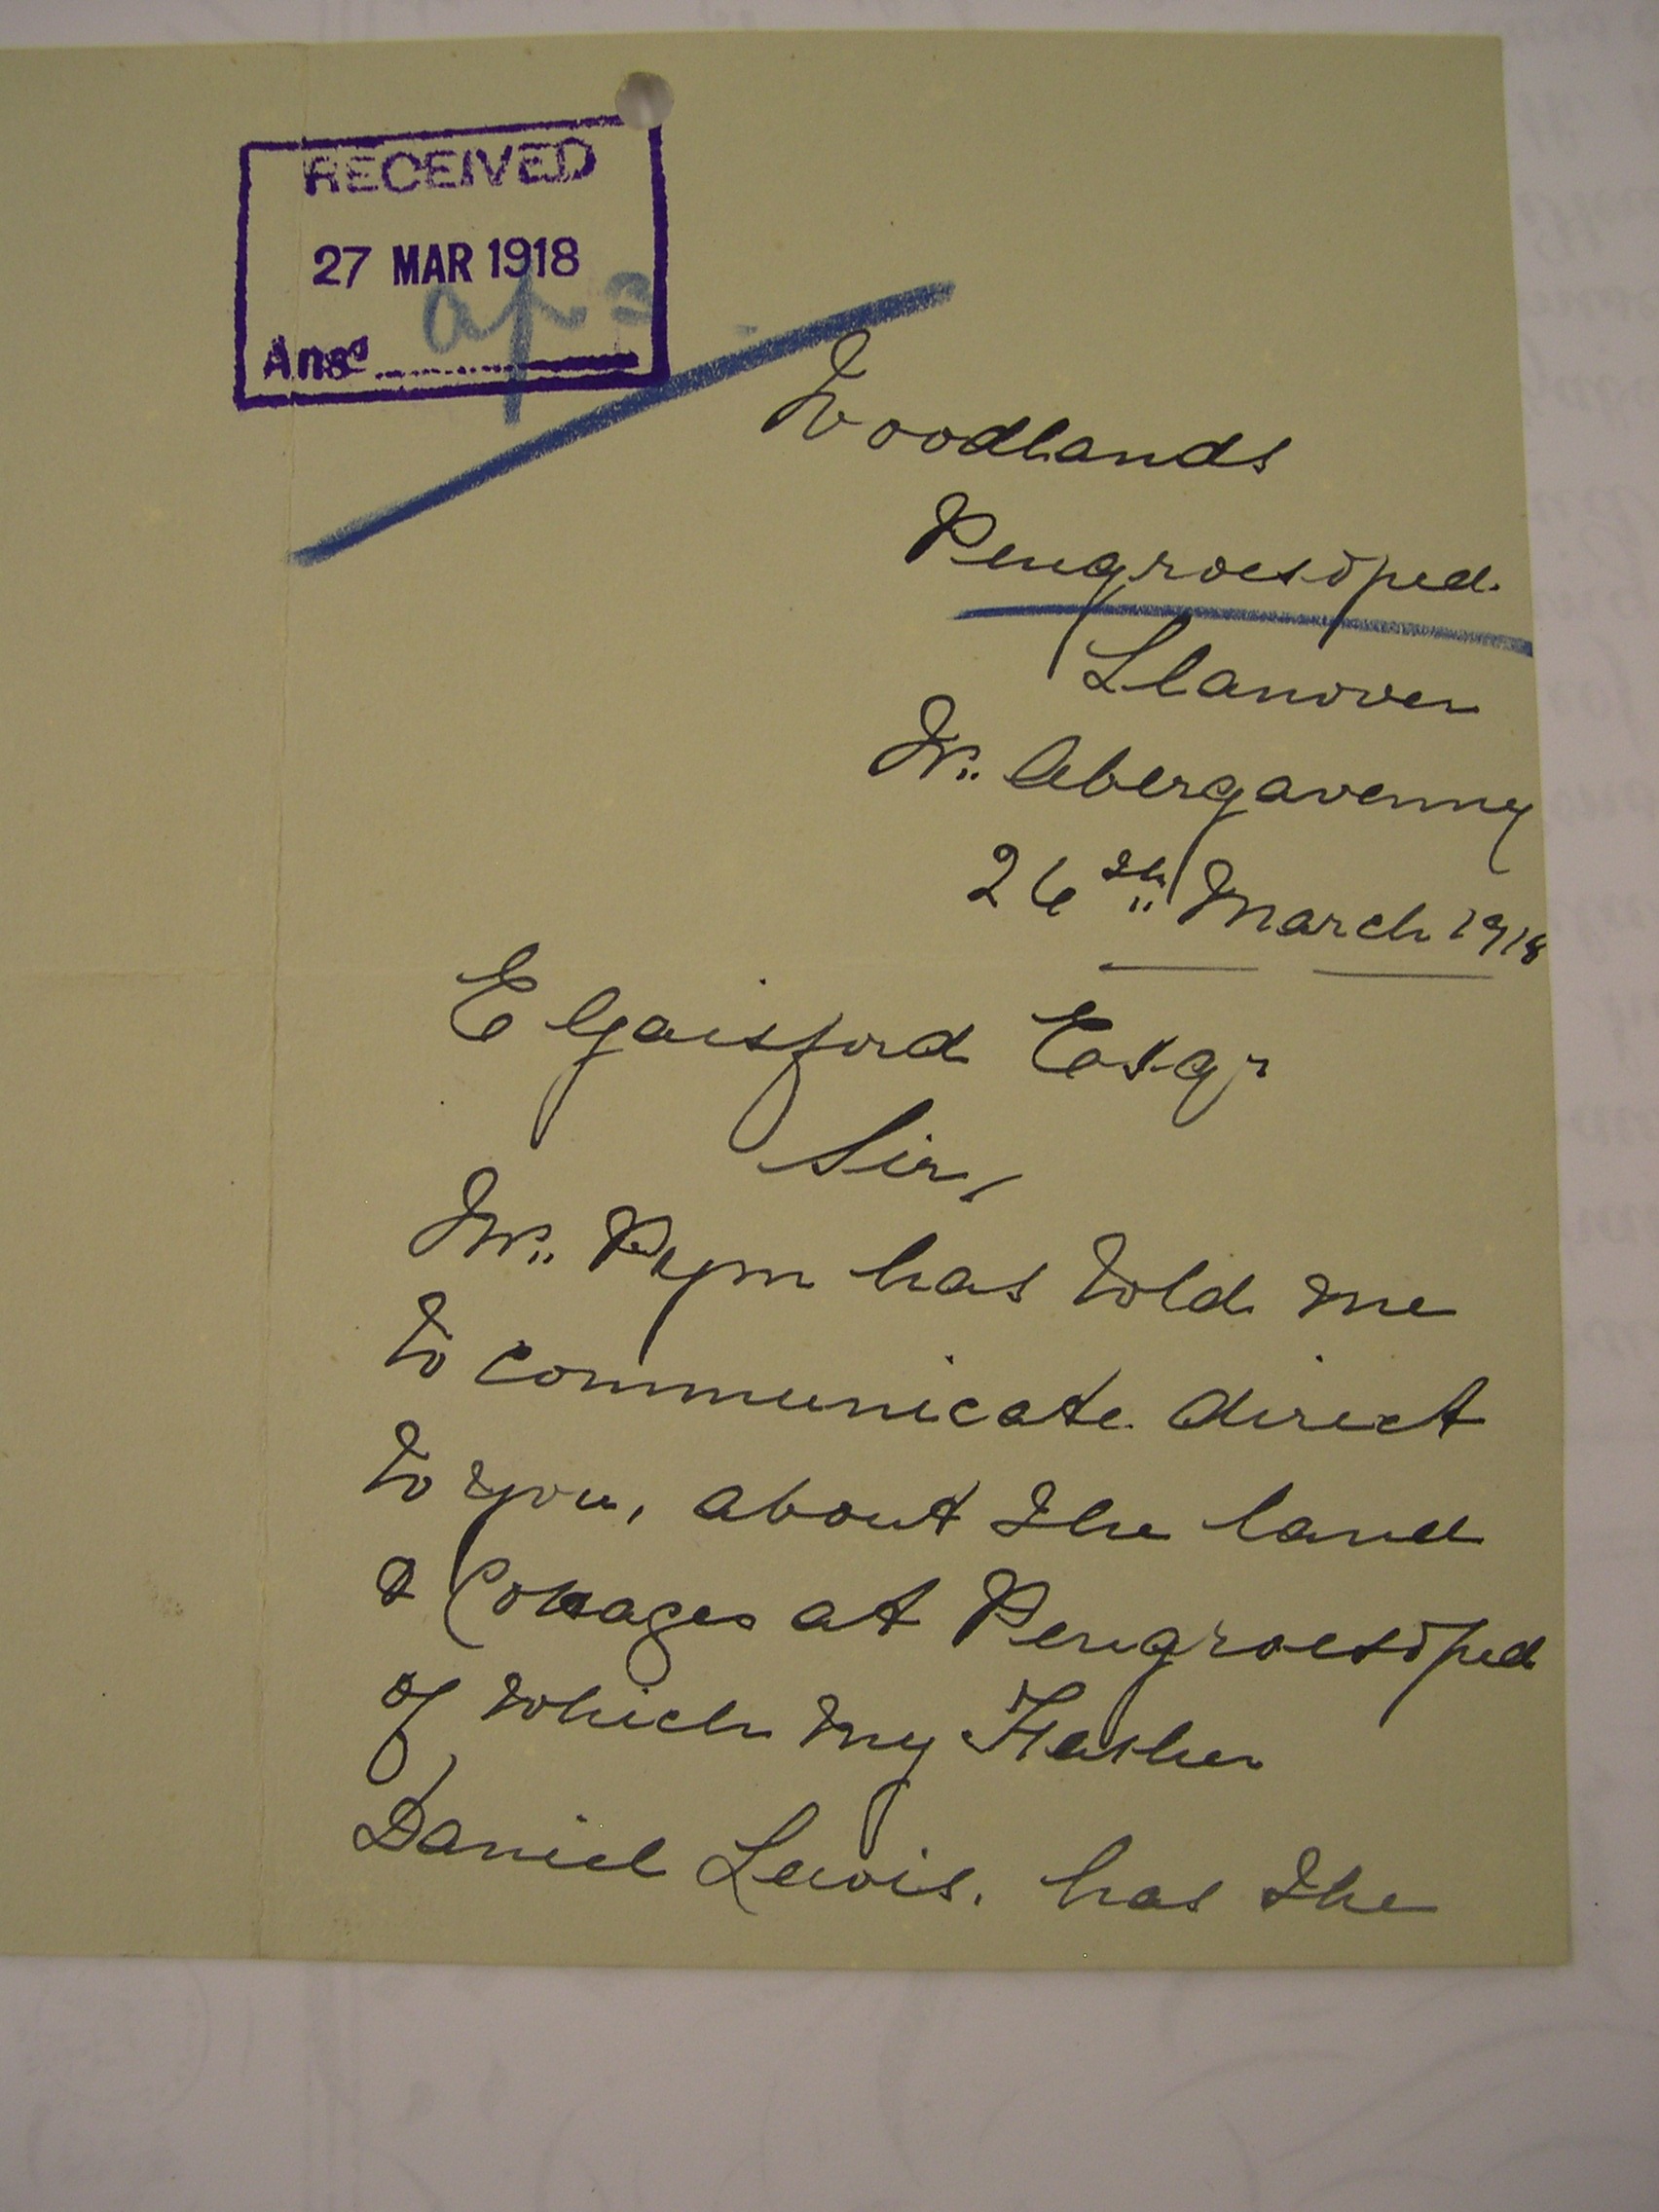 RECEIVED
27 MAR 1918
Ansd
ap 3
Woodlands
Pengroesoped
Llanover
Nr. Abergavenny
26th March 1918
E Gaisford Esqr
Sir,
Mr. Pym has told me
to communicate direct
to you, about the land
& Cottages at Pengroesoped
of which my Father
Daniel Lewis. has the